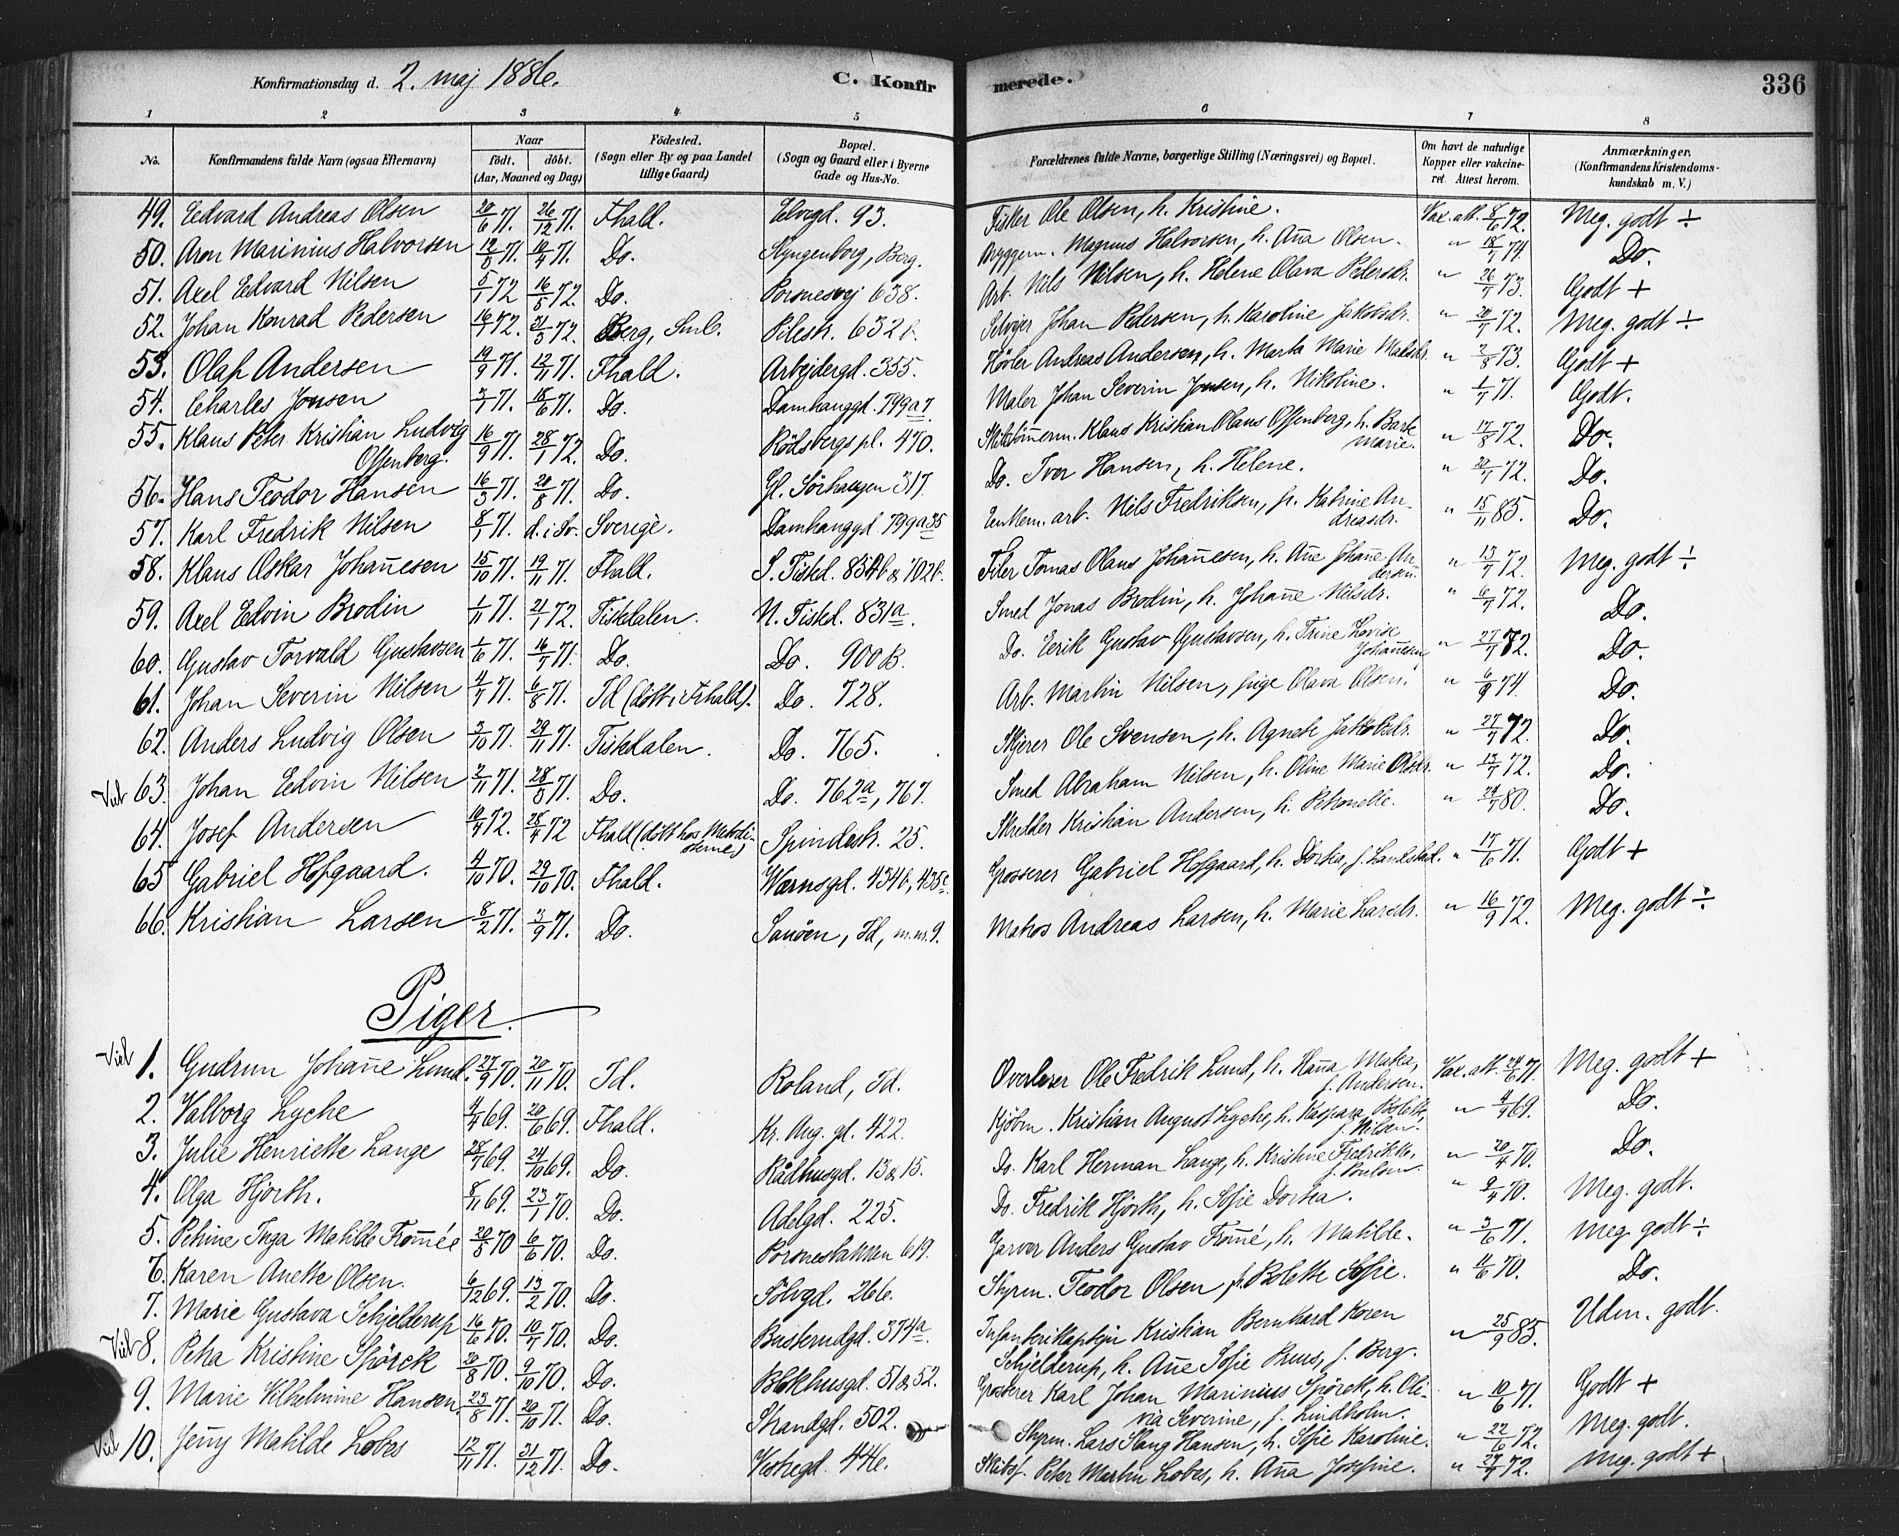 Konfirmationsdag d. 2. maj 1886. C. Konfirmerede. 336
1 2 3 4 5 6 7 8
No. Konfirmandens fulde Navn (ogsaa Efternavn) Naar født. døbt. (Aar, Maaned og Dag) Födested. (Sogn eller By og paa Landet tillige Gaard) Bopæl. (Sogn og Gaard eller i Byerne Gade og Hus-No. Forældrenes fulde Navne, borgerlige Stilling (Næringsvei) og Bopæl. Om havt de naturlige Kopper eller vakcineret. Attest herom. Anmærkninger. (Konfirmandens Kristendomskundskab m. V.)
49. Edvard Andreas Olsen 20/6 71. 26/12 71. Fhald. Selvigd. 93. Fisker Ole Olsen, h. Kristine. Vax. att. 8/6 72. Meg. godt ÷
50. Aron Marinius Halvorsen 12/3 71. 10/4 71. Do. Klyngenborg, Berg. Bryggem. Magnus Halvorsen, h. Aña Olsen. " 18/7 74. Do.
51. Axel Edvard Nilsen 5/1 72 16/5 72. Do. Porsnesvej 638. Arb. Nils Nilsen, h. Helene Olava Pedersdr. " 26/7 73. Godt +
52. Johan Konrad Pedersen 16/1 72. 31/3 72. Berg, Sml. Pilestr. 632b. Selvejer Johan Pedersen, h. Karoline Jakobsdr. " 20/7 72. Meg. godt ÷
53. Olaf Andersen 19/9 71. 12/11 71. Fhald. Arbejdergd. 355. Høvler Andreas Andersen, h. Marta Marie Matsdr. " 2/8 73. Godt +
54. Charles Jonsen 3/1 71. 18/6 71. Do. Damhauggd. 799a7 Maler Johan Severin Jonsen, h. Nikoline. " 1/7 71. Godt.
55. Klaus Peter Kristian Ludvig Offenberg. 16/9 71. 28/1 72. Do. Rödsbergs pl. 470. Skibstömerm. Klaus Kristian Olaus Offenberg, h. Barb. marie. " 17/8 72. Do.
56. Hans Teodor Hansen 16/3 71. 20/8 71. Do. Gl. Sörhaugen 317. Do. Iver Hansen, h. Helene. " 72. Do.
57. Karl Fredrik Nilsen 8/1 71. d. i Sv. Sverige. Damhauggd. 799a35 Enkem. arb. Nils Fredriksen, f. Katrine Andreasdr. " 15/11 85. Do.
58. Klaus Oskar Johañesen 15/10 71. 19/11 71. Fhald. S. Tistd. 854b & 702b. Filer Tomas Olaus Johañesen, h. Añe Johañe Andersen. " 13/7 72. Meg. godt ÷
59. Axel Edvin Brodin 1/11 71. 21/1 72. Tistedalen. N. Tistd. 831a. Smed Jonas Brodin, h. Johañe Nilsdr. " 6/7 72. Do.
60. Gustav Torvald Gustavsen 1/6 71. 16/7 71. Do. Do. 900B. Do. Erik Gustav Gustavsen, h. Trine Lovise Johañesen " 27/7 72. Do.
61. Johan Severin Nilsen 4/7 71. 6/8 71. Id (döbt i Frhald). Do. 728. Arb. Martin Nilsen, pige Olava Olsen. " 6/9 74. Do.
62. Anders Ludvig Olsen 3/10 71. 29/11 71. Tistedalen. Do. 765. Skjærer Ole Svensen, h. Agnete Jakobsdr. " 27/7 72. Do.
Viet 63. Johan Edvin Nilsen 2/11 71. 28/3 71. Do. Do. 762a, 767. Smed Abraham Nilsen, h. Oline Marie Olsdr. " 13/7 72. Do.
64. Josef Andersen 10/4 72. 28/4 72 Fhald (döbt hos Metodisterne) Spindestr. 25. Skredder Kristian Andersen, h. Petronelle. " 24/7 80. Do.
65 Gabriel Hofgaard. 4/10 70. 29/10 70. Fhald. Wærnsgd. 434b, 435c. Grosserer Gabriel Hofgaard, h. Dortea, f. Landstad. " 17/6 71. Godt +
66. Kristian Larsen 8/2 71. 3/9 71. Do. Sauöen, Id, m.nr. 9. Matros Andreas Larsen, h. Marie Larsdr. " 16/9 72. Meg. godt ÷
Piger.
Viet 1. Gudrun Johañe Lund. 27/9 70. 20/11 70. Id. Roland, Id. Overlærer Ole Fredrik Lund, h. Haña Matea, f. Andersen. Vax. att. 24/6 71. Meg. godt +
2. Valborg Lyche 4/4 69. 20/6 69. Fhald. Kr. Aug. gd. 422. Kjöbm. Kristian August Lyche, h. Kaspara Bolette, f. Nilsen. " 4/9 69. Do.
3. Julie Henriette Lange 28/7 69. 24/10 69. Do. Rådhusgd. 13 & 15. Do. Karl Herman Lange, h. Kristine Fredrikke, f. Poulsen. " 20/4 70. Do.
4. Olga Hjorth. 8/11 69. 23/1 70. Do. Adelgd. 225. Do. Fredrik Hjorth, h. Sofie Dortea. " 9/4 70. Meg. godt.
5. Petrine Inga Matilde Froñée 20/3 70 6/6 70. Do. Porsnesbakken 619. Garver Anders Gustav Froñé, h. Matilde. " 3/6 71. Meg godt ÷
6. Karen Anette Olsen. 6/12 69. 13/2 70. Do. Sölvgd. 266. Styrm. Teodor Olsen f. Bolette Sofie. " 11/6 70. Do.
7. Marie Gustava Schjelderup 16/6 70. 10/7 70. Do. Busterudgd. 374a. Infanterikaptejn Kristian Bernhard Koren Schjelderup, h. Añe Sofie Preus, f. Berg. " 25/9 85. Udm. godt.
Viet 8. Petra Kristine Spörck 20/8 70. 9/10 70. Do. Blokhusgd. 51 & 52. Grosserer Karl Johan Marinius Spörck, h. Olivia Severine, f. Lindholm. " 10/6 71. Godt +
9. Marie Vilhelmine Hansen. 23/8 71. 20/10 71. Do. Strandgd. 502. Styrm. Lars Slang Hansen, h. Sofie Karoline. " 22/6 72. Meg. godt.
Viet 10. Jeñy Matilde Lobes 12/11 71. 31/12 71. Do. Vestregd. 446. Skibsf. Peter Martin Lobes, h. Aña Josefine. " 27/7 72. Meg. godt +